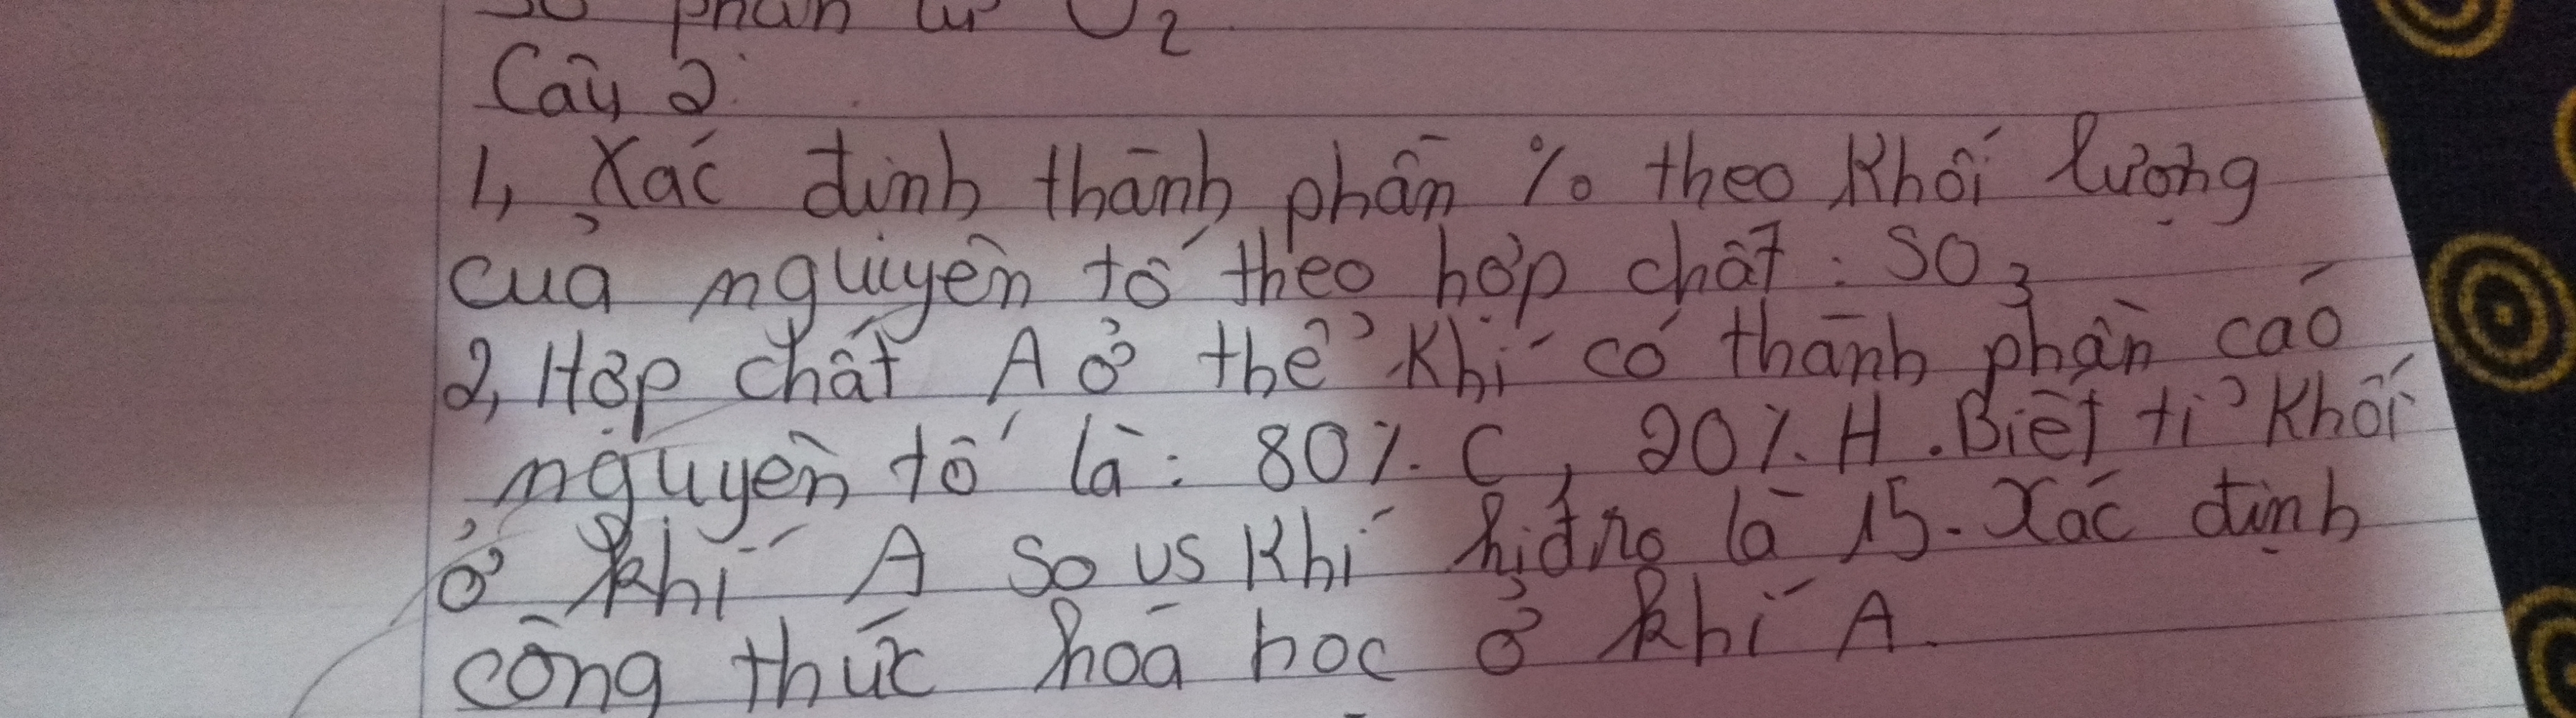 phân tử O2
Câu 2:
1, Xác định thành phần % theo khối lượng
của nguyên tố theo hợp chất: SO3
2, Hợp chất A ở thể khí có thành phần các
nguyên tố là: 80% C, 20% H. Biết tỉ khối
ở khí A so vs khí hiđro là 15. Xác định
công thức hoá học ở khí A.